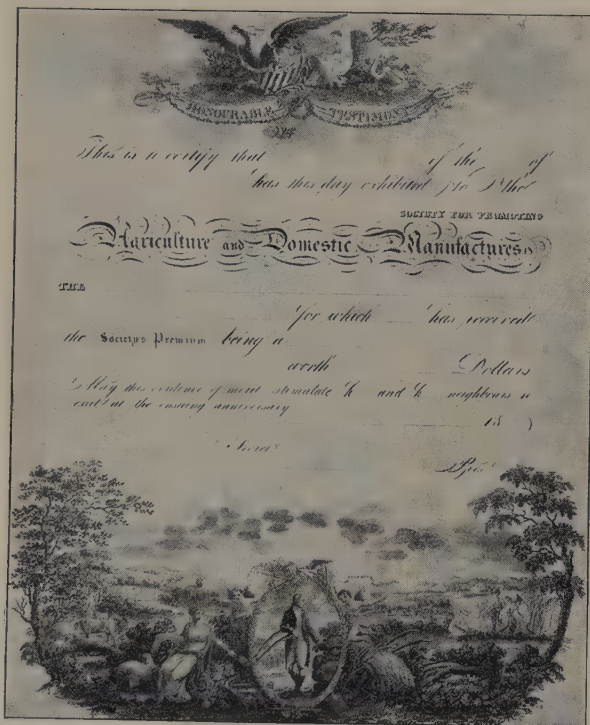 HONOURABLE TESTIMONY
This is to certify that of the of
has this day exhibited to the
SOCIETY FOR PROMOTING
Agriculture and Domestic Manufactures
THE
for which has received
the Society's Premium being a
worth Dollars
May this evidence of merit stimulate h and h neighbours to
excel at the ensuing anniversary
18
Secret
Prest